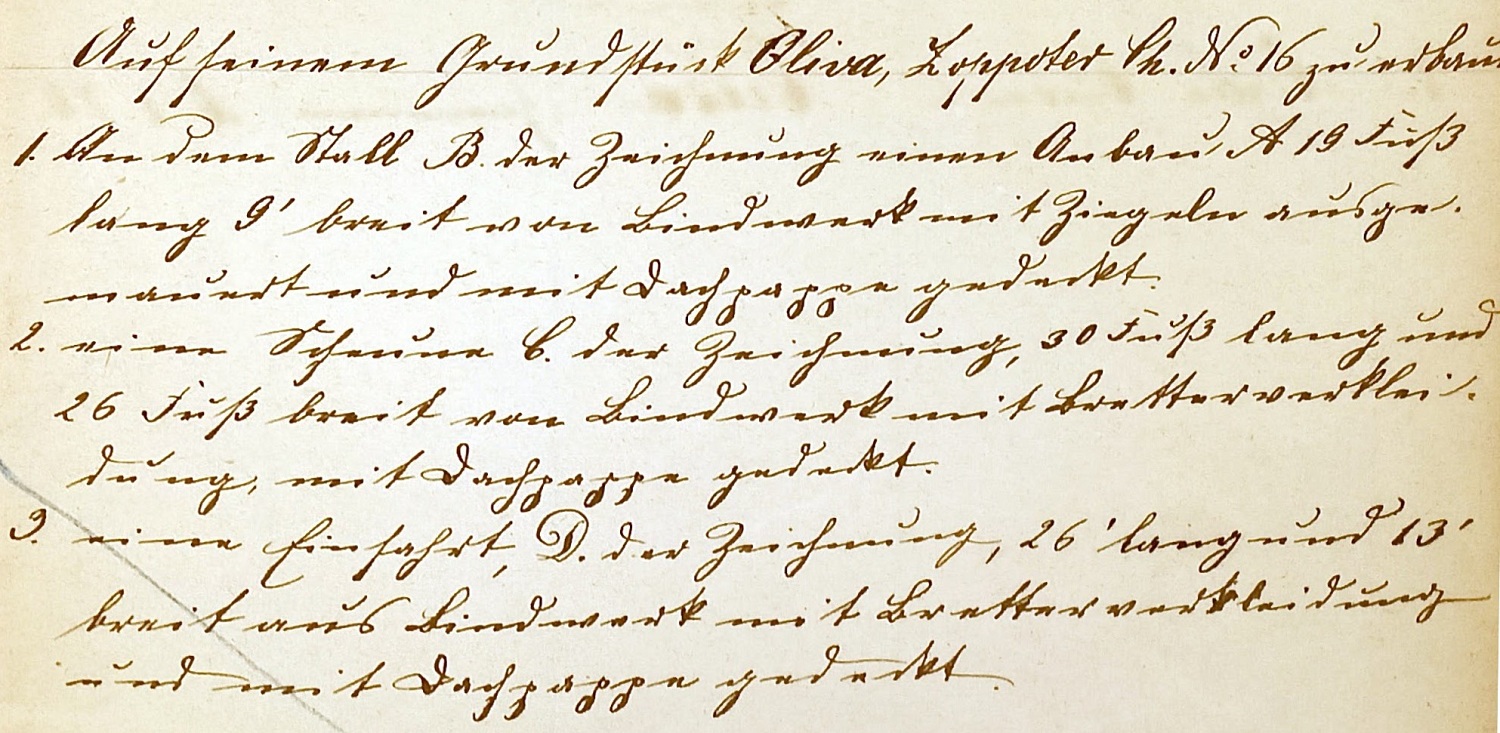 Auf seinem Grundstück Oliva, Zoppoter Ch. No 16 zu erbau
1. An dem Stall B. der Zeichnung einen Anbau A 19 Fuß
lang 9' breit von Bindwerk mit Ziegeln ausge-
mauert und mit Dachpappe gedeckt.
2. eine Scheune C. der Zeichnung, 30 Fuß lang und
26 Fuß breit von Bindwerk mit Bretterverklei-
dung, mit Dachpappe gedeckt.
3. eine Einfahrt, D. der Zeichnung, 26' lang und 13'
breit aus Bindwerk mit Bretterverkleidung
und mit Dachpappe gedeckt.